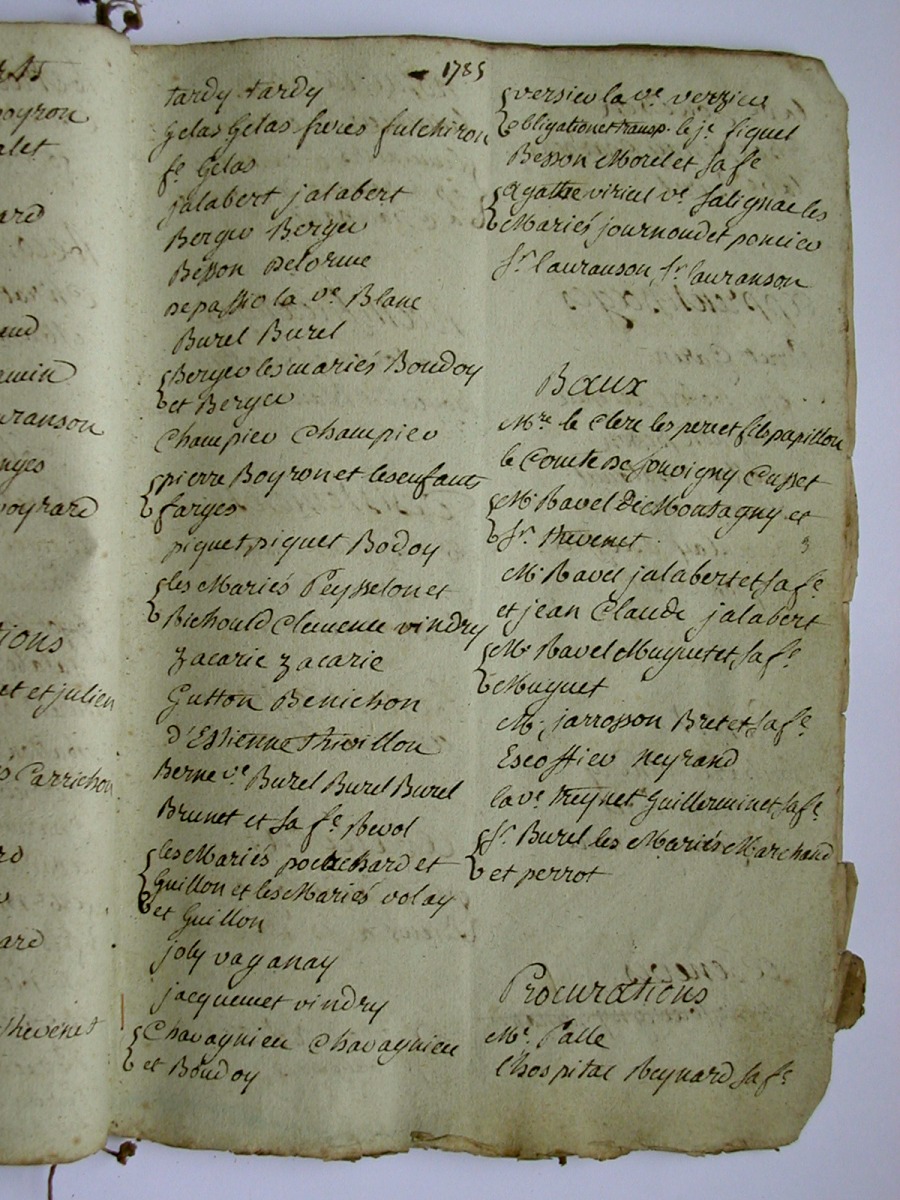 1785
oyron
alet
ard
aud
amin
uranson
nges
oyrard
tions
et et julien
Carrichon
rd
ard
thevenet
tardy tardy
Gelas Gelas freres fulchiron
fe Gelas
jalabert jalabert
Berger Berger
Besson Delorme
Depassio la ve Blanc
Burel Burel
Berger les mariés Boudoy
et Berger
Champier Champier
pierre Boyron et les enfants
farges
piquet piquet Bodoy
les Mariés Peysselon et
Richould Clemence vindry
Zacarie Zacarie
Gutton Benichon
d'Estienne Thivillon
Berne ve Burel Burel Burel
Brunet et sa fe Revol
les Mariés pochard et
Guillon et les Mariés volay
et Guillon
joly vaganay
jacquemet vindry
Chavagnieu Chavagnieu
et Boudoy
versieu la ve verzieu
obligation et transp. le je fiquet
Besson Morel et sa fe
Agathe viricel ve Salignac les
Mariés journoud et poncier
Sr lauranson Sr lauranson
Baux
Mre le Clerc les pere et fils papillon
le Comte de Souvigny Cusset
Mr Ravel De Montagny et
Sr thevenet
Mr Ravel jalabert et sa fe
et jean Claude jalabert
Mr Ravel Muguet et sa fe
Muguet
Mr jarrosson Bret et sa fe
Escoffier neyrand
la ve treynet Guillermin et sa fe
Sr Burel les Mariés Marchand
et perrot
Procurations
Mr Palle
l'hospital Reynard sa fe